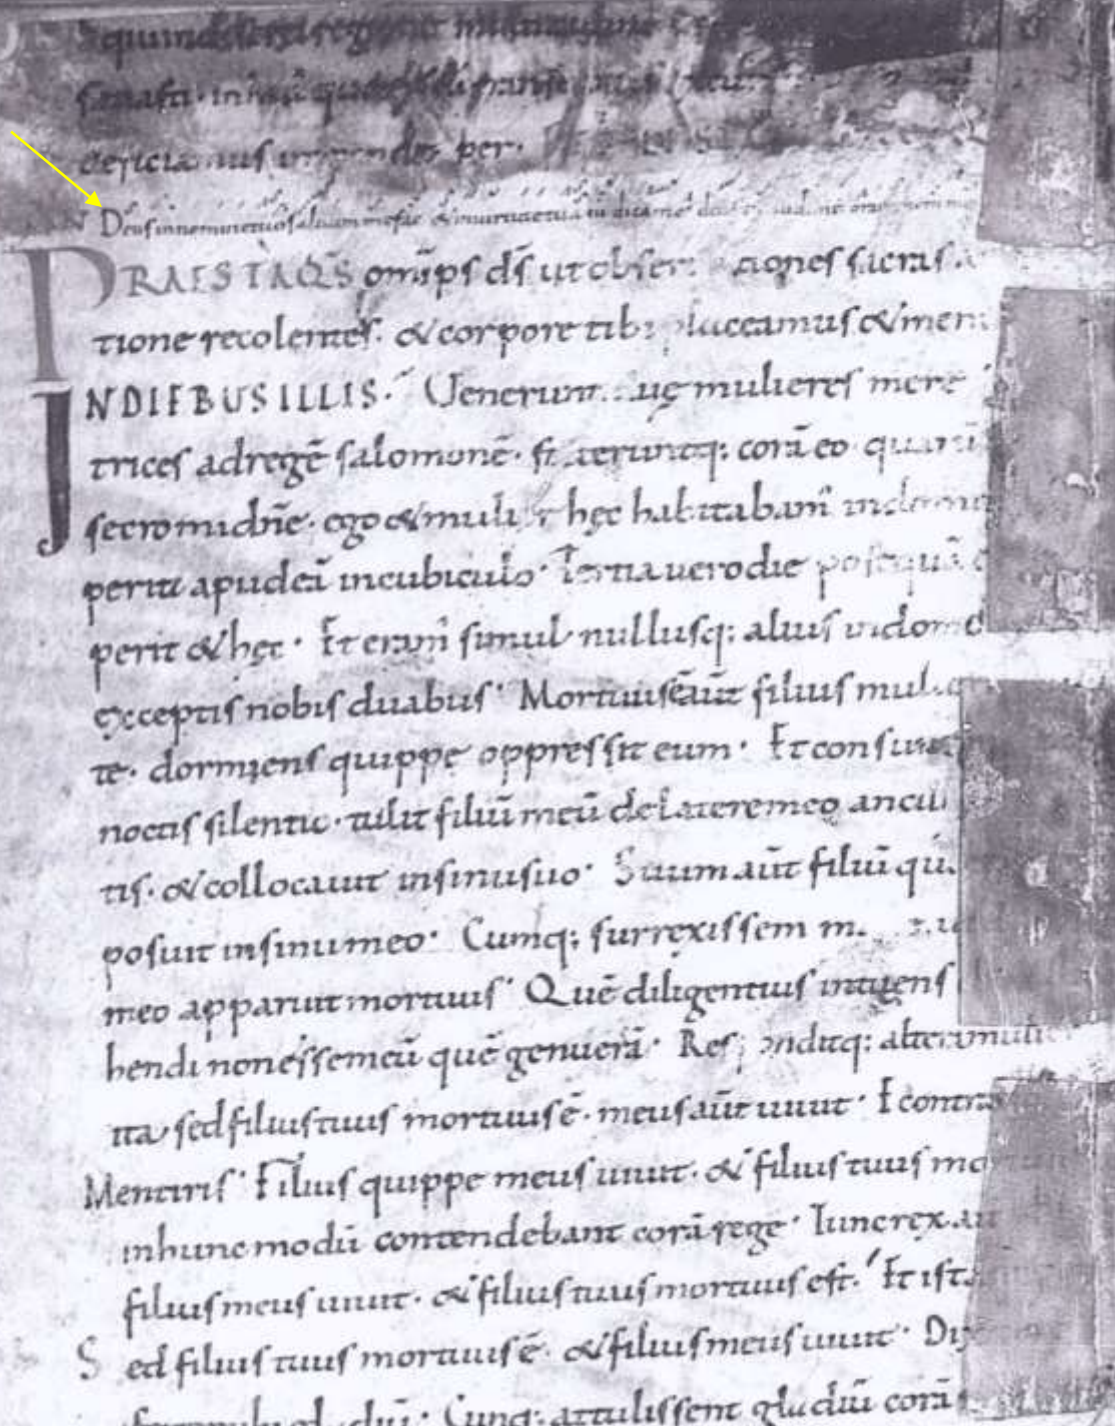 deficiamus impendes per·
Deus in nomine tuo saluum me fac & in uirtute tua
PRAESTA Q̄S om̄ps d̄s ut obser ciones sacras
tione recolentes· & corpore tibi placeamus & men
IN DIEBUS ILLIS· Uenerunt mulieres mere
trices ad regē salomonē· steteruntq: corā eo quarū
secro mi dn̄e· ego & mulier hęc habitabam̄ in domo
peri apud eā in cubiculo· Tertia uero die postquā
perit & hęc· Et eram̄ simul nullusq: alius in domo
exceptis nobis duabus· Mortuus ē aūt filius muli
te· dormiens quippe oppressit eum· Et consur
noctis silentio· tulit filiū meū de latere meo ancill
tis· & collocauit in sinu suo· Suum aūt filiū qui
posuit in sinu meo· Cumq: surrexissem
meo apparuit mortuus· Quē diligentius intuens
hendi non esse meū quē genuerā· Responditq: altera muli
ita sed filius tuus mortuus ē· meus aūt uiuit· E contra
Mentiris· Filius quippe meus uiuit· & filius tuus mo
in hunc modū contendebant corā rege· Tunc rex
filius meus uiuit· & filius tuus mortuus est· Et ista
Sed filius tuus mortuus ē· & filius meus uiuit· Dix
gladiū· Cumq: attulissent gladiū corā